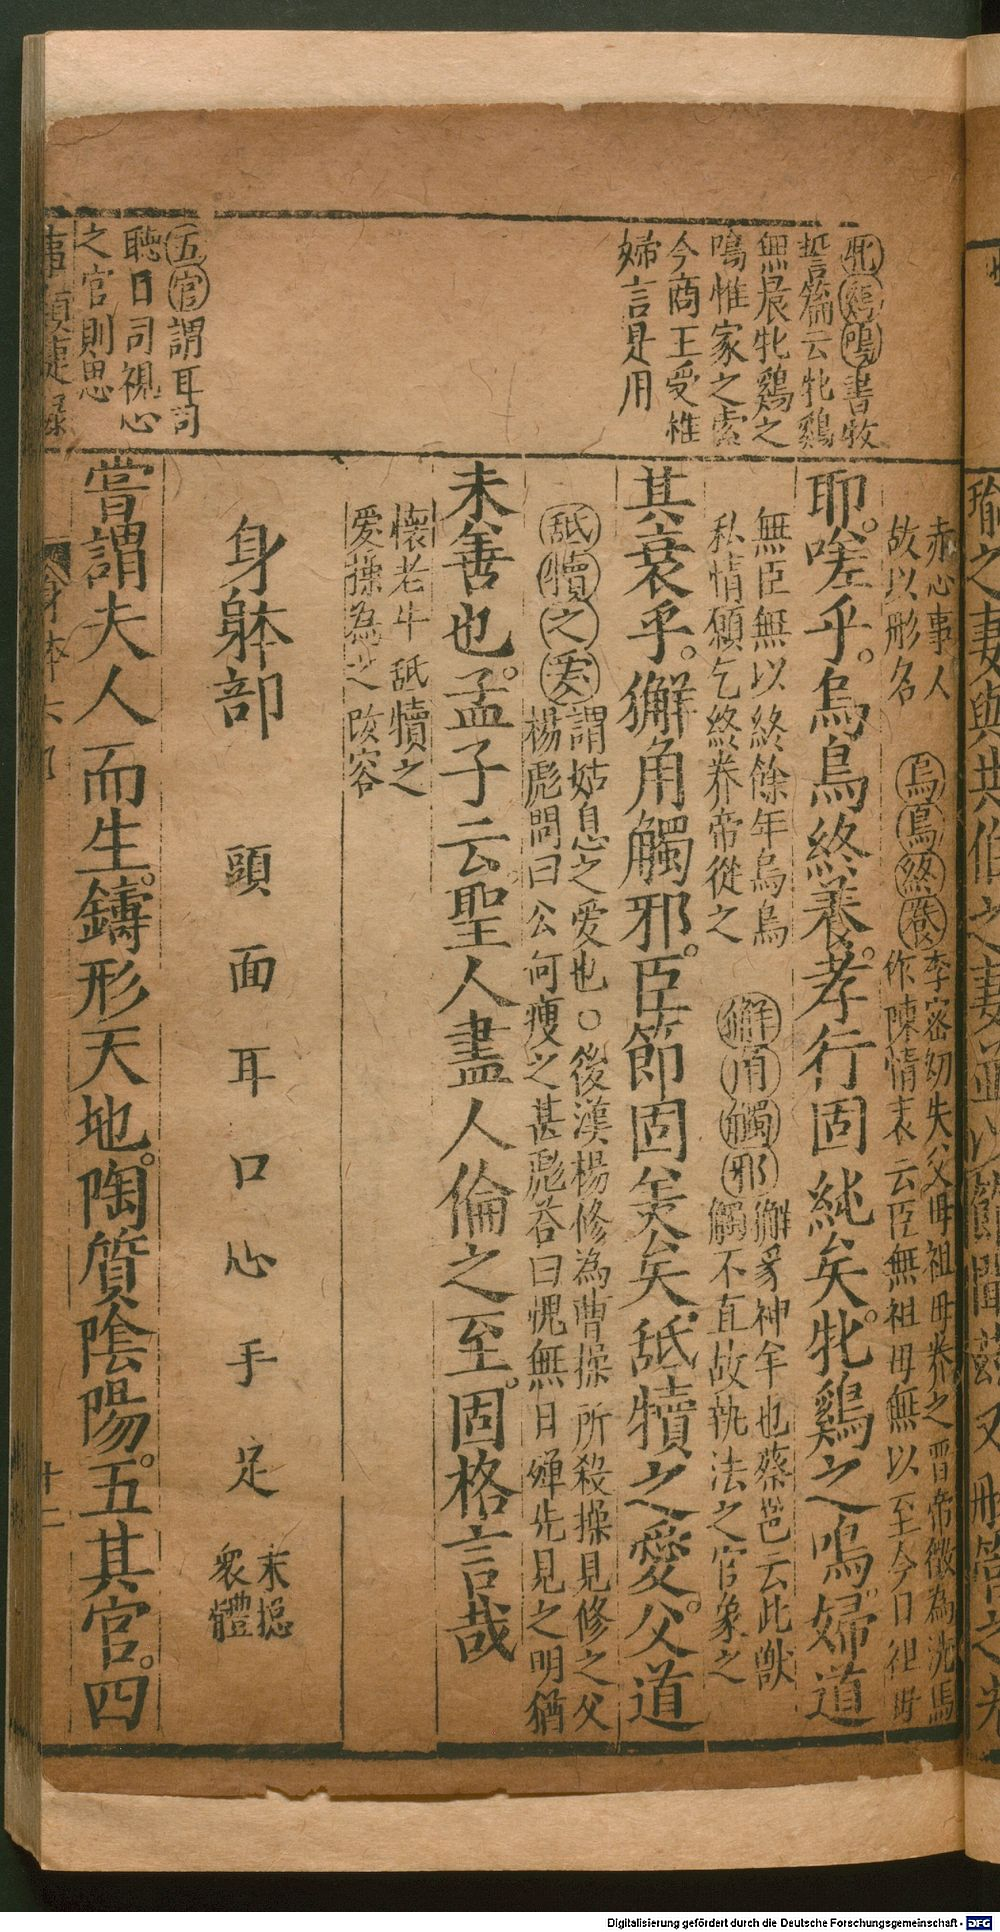 牝鷄鳴書牧
誓篇云牝鷄
無晨牝鷄之
鳴惟家之索
今商王受惟
婦言是用
五官謂耳司
聽目司視心
之官則思
赤心事人
故以形名
烏鳥終養
李密幼失父母祖母养之晋帝徵為洗馬
作陳情表云臣無祖母無以至今日祖母
耶。嗟乎。烏鳥終養。孝行固純矣。牝鷄之鳴。婦道
無臣無以終餘年烏鳥
私情願乞終养帝從之
獬角觸邪
獬豸神羊也蔡邕云此獸
觸不直故執法之官象之
其衰乎。獬角觸邪。臣節固羙矣。舐犢之愛。父道
舐犢之爱
謂姑息之愛也○後漢楊修為曹操所殺操見修之父
楊彪問曰公何瘦之甚彪荅曰愧無日磾先見之明猶
未善也。孟子云。聖人盡人倫之至。固格言哉
懷老牛舐犢之
爱操為之改容
身躰部 頭 面 耳 口 心 手 足
末捴
衆體
嘗謂夫人而生。鑄形天地。陶質陰陽。五其官。四